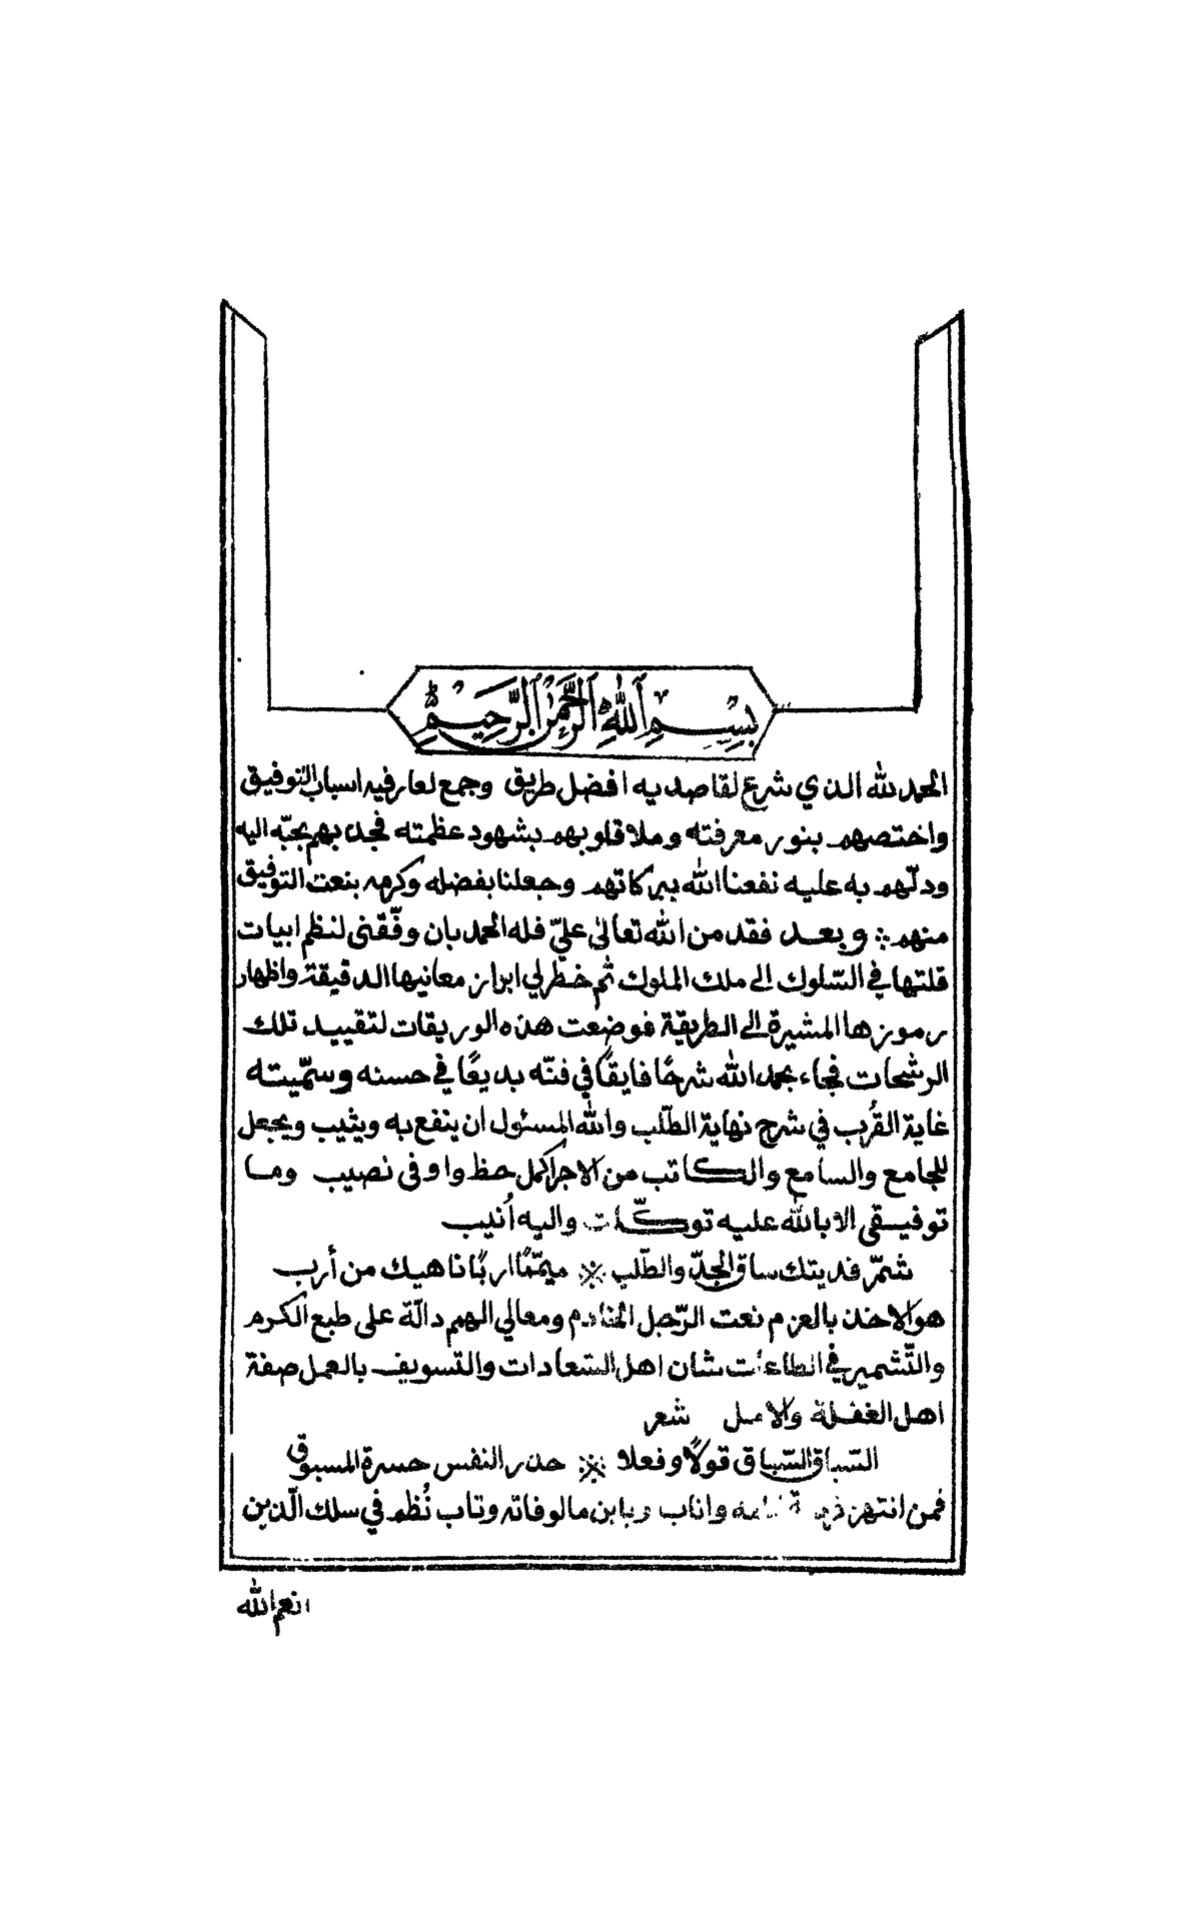 بِسْمِ ٱللَّهِ ٱلرَّحْمَنِ ٱلرَّحِيمِ
الحمد لله الذي شرع لقاصديه افضل طريق وجمع لعارفيه اسباب التوفيق
واختصهم بنور معرفته وملا قلوبهم بشهود عظمته فجذبهم بحبّه اليه
ودلّهم به عليه نفعنا الله ببركاتهم وجعلنا بفضله وكرمه بنعت التوفيق
منهم ؞ وبعد فقد من الله تعالى عليّ فله الحمد بان وفّقني لنظم ابيات
قلتها في السّلوك الى ملك الملوك ثم خطر لي ابراز معانيها الدقيقة واظهار
رموزها المشيرة الى الطريقة فوضعت هذه الوريقات لتقييد تلك
الرشحات فجاء بحمد الله شرحًا فايقًا في فنّه بديعًا في حسنه وسمّيته
غاية القُرب في شرح نهاية الطّلب والله المسئول ان ينفع به ويثيب ويجعل
للجامع والسامع والكاتب من الاجر اكمل حظ واوفى نصيب وما
توفيقي الا بالله عليه توكّلت واليه أُنيب
شمّر فديتك ساق الجدّ والطّلب ※ ميمّمًا اربًا ناهيك من أرب
هو الاخذ بالعزم نعت الرّجل الحازم ومعالي الهمم دالّة على طبع الكرم
والتّشمير في الطاعات شان اهل السّعادات والتسويف بالعمل صفة
اهل الغفلة والامل شعر
السّباق السّباق قولاً وفعلا ※ حذر النفس حسرة المسبوق
فمن انتهز واناب مالوفاته وتاب نُظم في سلك الّذين
انعم الله